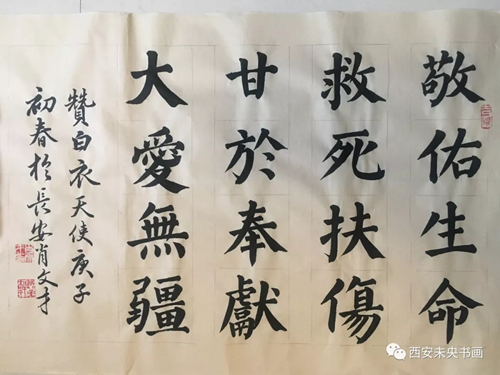 敬佑生命
救死扶傷
甘於奉獻
大愛無疆
贊白衣天使庚子
初春於長安肖文才
西安未央书画